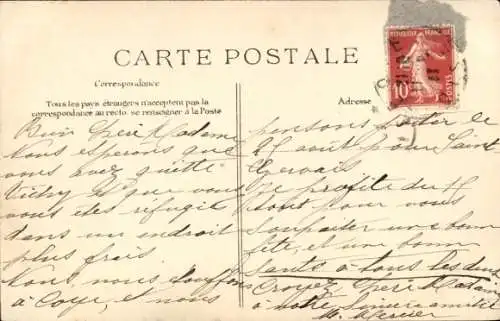 CARTE POSTALE
Correspondance
Tous les pays étrangers n'acceptent pas la
correspondance au recto. se renseigner à la Poste
Adresse
REPUBLIQUE FRANÇAISE
10
POSTES
Bien Chère Madame
Nous esperons que
vous avez quitté
Vichy et que vous
vous êtes réfugié
dans un endroit
plus frais.
Nous, nous étouffons
à Coye, et nous
pensons quitter le
15 août pour Saint
Gervais
Je profite du 15
août pour vous
souhaiter une bonne
fête, et une bonne
Santé à tous les deux
Croyez Chère Madame
à notre sincère amitié
M. Mercier